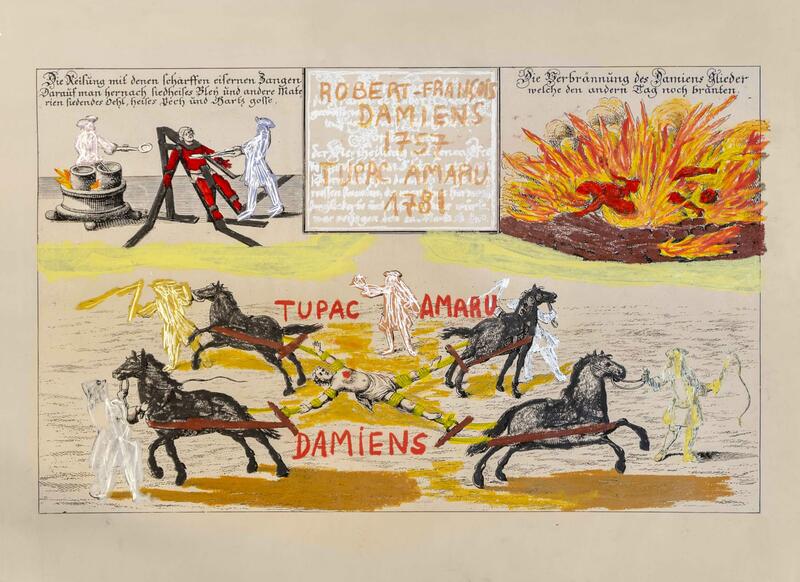 Die Reisung mit denen scharffen eisernen Zangen
Darauf man hernach siedheises Bley und andere Mate
rien siedendes Oehl, heises Pech und Hartz gosse.
ROBERT-FRANÇOIS
DAMIENS
1757
TUPAC AMARU
1781
Die Verbrännung des Damiens Glieder
welche den andern Tag noch branten.
TUPAC AMARU
DAMIENS